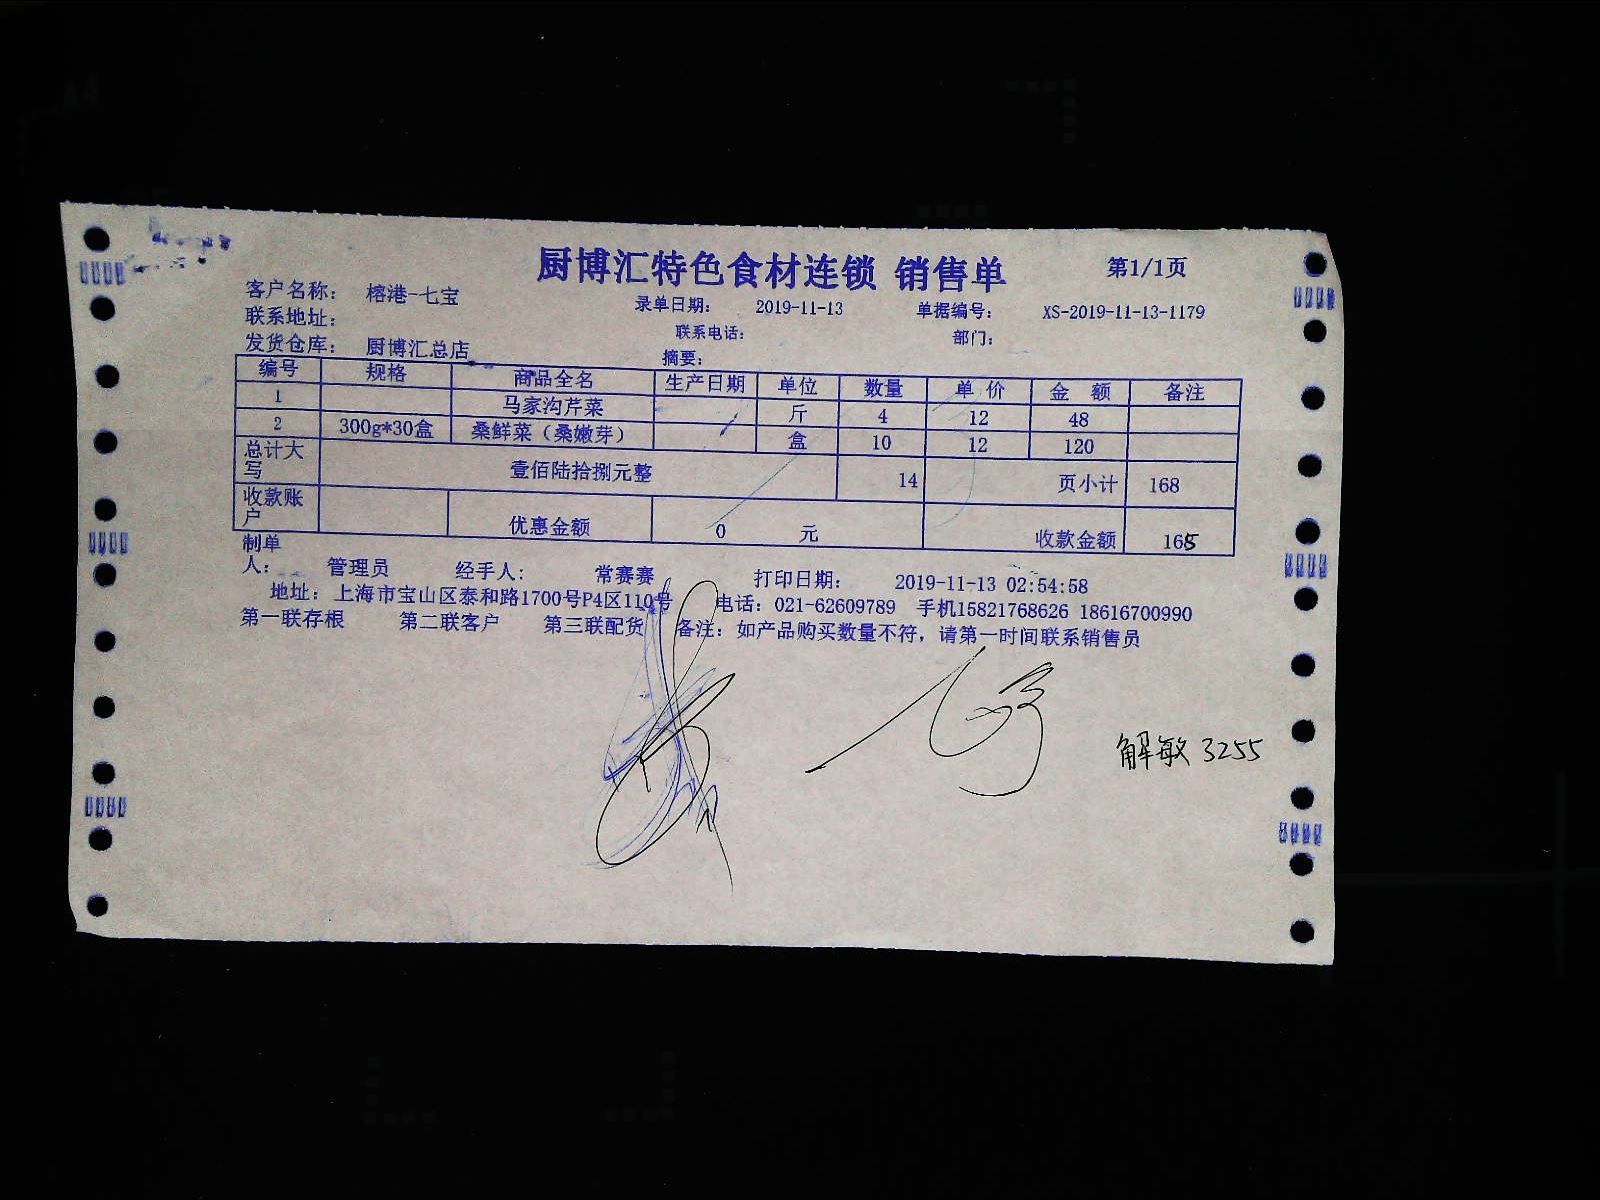 厨博汇特色食材连锁 销售单 第1/1页
客户名称： 榕港-七宝 录单日期： 2019-11-13 单据编号： XS-2019-11-13-1179
联系地址： 联系电话： 部门：
发货仓库： 厨博汇总店 摘要：
编号 规格 商品全名 生产日期 单位 数量 单 价 金 额 备注
1 马家沟芹菜 斤 4 12 48
2 300g*30盒 桑鲜菜（桑嫩芽） 盒 10 12 120
总计大写 壹佰陆拾捌元整 14 页小计 168
收款账户 优惠金额 0 元 收款金额 165
制单人： 管理员 经手人： 常赛赛 打印日期： 2019-11-13 02:54:58
地址：上海市宝山区泰和路1700号P4区110号 电话：021-62609789 手机15821768626 18616700990
第一联存根 第二联客户 第三联配货 备注：如产品购买数量不符，请第一时间联系销售员
解敏 3255